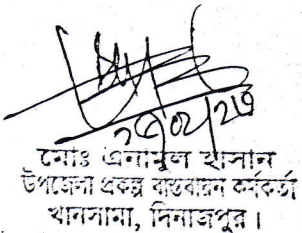 ২৫/০২/২৩
মোঃ এনামুল হাসান
উপজেলা প্রকল্প বাস্তবায়ন কর্মকর্তা
খানসামা, দিনাজপুর।